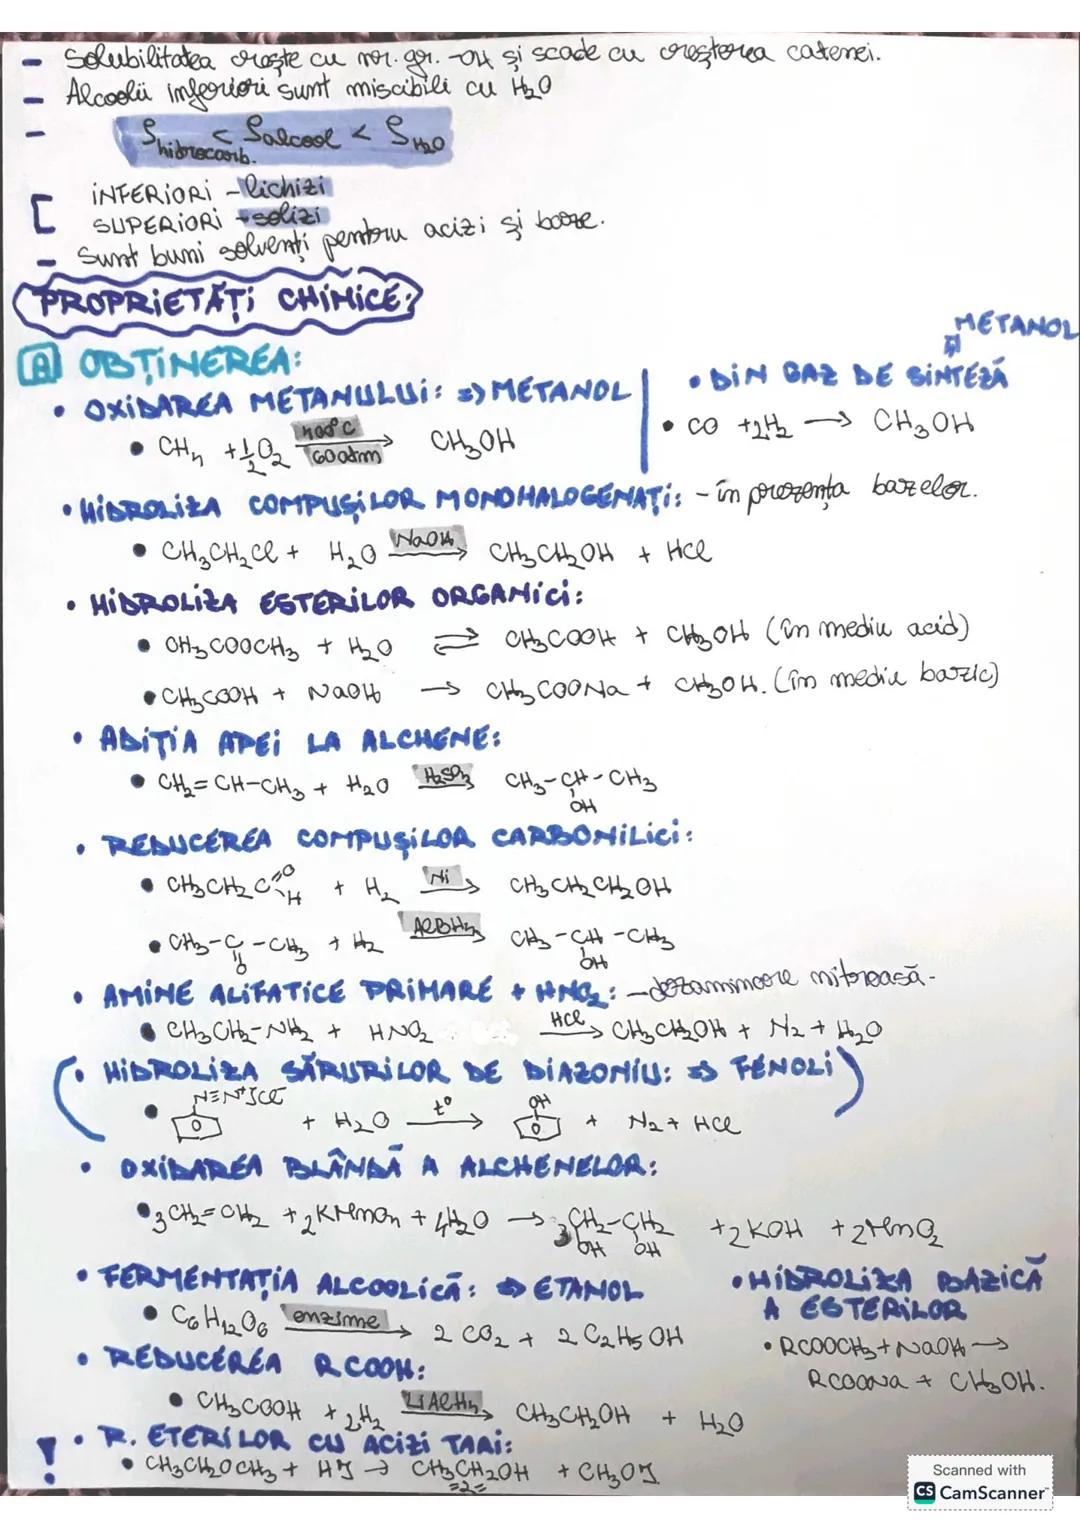 - Solubilitatea crește cu nr. gr. -OH și scade cu creșterea catenei.
- Alcoolii inferiori sunt miscibili cu H₂O
- ρhidrocarb. < ρalcool < ρH₂O
INFERIORI - lichizi
SUPERIORI - solizi
- Sunt buni solvenți pentru acizi și baze.
PROPRIETĂȚI CHIMICE:
A OBȚINEREA:
• OXIDAREA METANULUI: => METANOL
• CH₄ + 1/2 O₂ 400°C 60atm → CH₃OH
METANOL
• DIN GAZ DE SINTEZĂ
• CO + 2H₂ → CH₃OH
• HIDROLIZA COMPUȘILOR MONOHALOGENAȚI: - în prezența bazelor.
• CH₃CH₂Cl + H₂O NaOH → CH₃CH₂OH + HCl
• HIDROLIZA ESTERILOR ORGANICI:
• CH₃COOCH₃ + H₂O ⇌ CH₃COOH + CH₃OH (în mediu acid)
• CH₃COOH + NaOH → CH₃COONa + CH₃OH. (în mediu bazic)
• ADIȚIA APEI LA ALCHENE:
• CH₂=CH-CH₃ + H₂O → CH₃-CH-CH₃
OH
• REDUCEREA COMPUȘILOR CARBONILICI:
• CH₃CH₂C=O H + H₂ Ni → CH₃CH₂CH₂OH
• CH₃-C-CH₃ + H₂ → CH₃-CH-CH₃
O OH
• AMINE ALIFATICE PRIMARE + HNO₂: - dezaminare nitroasă.
• CH₃CH₂-NH₂ + HNO₂ HCl → CH₃CH₂OH + N₂ + H₂O
• HIDROLIZA SĂRURILOR DE DIAZONIU: => FENOLI
N≡N⁺]Cl⁻ OH
• + H₂O t° → + N₂ + HCl
• OXIDAREA BLÂNDĂ A ALCHENELOR:
• 3CH₂=CH₂ + 2KMnO₄ + 4H₂O → 3CH₂-CH₂ + 2KOH + 2MnO₂
OH OH
• FERMENTAȚIA ALCOOLICĂ: => ETANOL
• C₆H₁₂O₆ enzime → 2 CO₂ + 2 C₂H₅OH
• HIDROLIZA BAZICĂ
A ESTERILOR
• RCOOCH₃ + NaOH →
RCOONa + CH₃OH.
• REDUCEREA RCOOH:
• CH₃COOH + 2H₂ LiAlH₄ → CH₃CH₂OH + H₂O
! • R. ETERILOR CU ACIZI TARI:
• CH₃CH₂OCH₃ + HI → CH₃CH₂OH + CH₃I
=2=
Scanned with
CS CamScanner